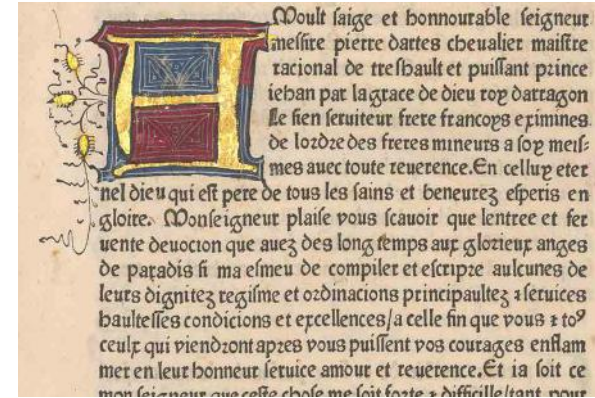 A Moult saige et honnourable seigneur
messire pierre dartes cheualier maistre
racional de treshault et puissant prince
iehan par la grace de dieu roy darragon
Le sien seruiteur frere francoys eximines.
de lordre des freres mineurs a soy meis⸗
mes auec toute reuerence. En celluy eter
nel dieu qui est pere de tous les sains et beneurez esperis en
gloire. Monseigneur plaise vous scauoir que lentree et fer
uente deuocion que auez des long temps aux glorieux anges
de paradis si ma esmeu de compiler et escripre aulcunes de
leurs dignitez regisme et ordinacions principaultez ⁊ seruices
haultesses condicions et excellences/a celle fin que vous ⁊ toꝰ
ceulx qui viendront apres vous puissent vos courages enflam
mer en leur honneur seruice amour et reuerence. Et ia soit ce
mon seigneur que ceste chose me soit forte ⁊ difficille/tant pour